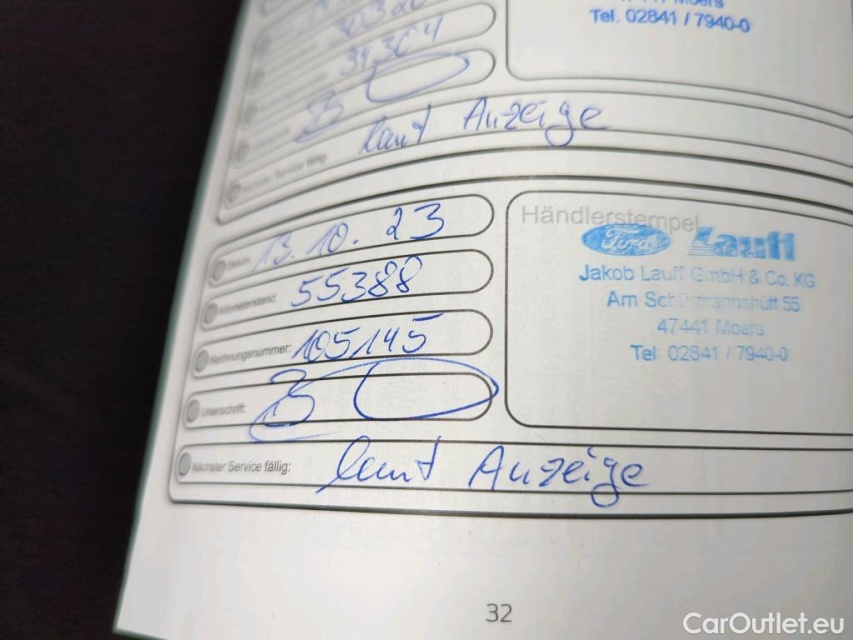 Moers
Tel. 02841 / 7940-0
laut Anzeige
Händlerstempel
Datum: 13. 10. 23
Ford Lauff
Kilometerstand: 55388
Jakob Lauff GmbH & Co. KG
Am Schürmannshütt 55
Rechnungsnummer: 105145
47441 Moers
Tel. 02841 / 7940-0
Unterschrift:
Nächster Service fällig: laut Anzeige
32
CarOutlet.eu